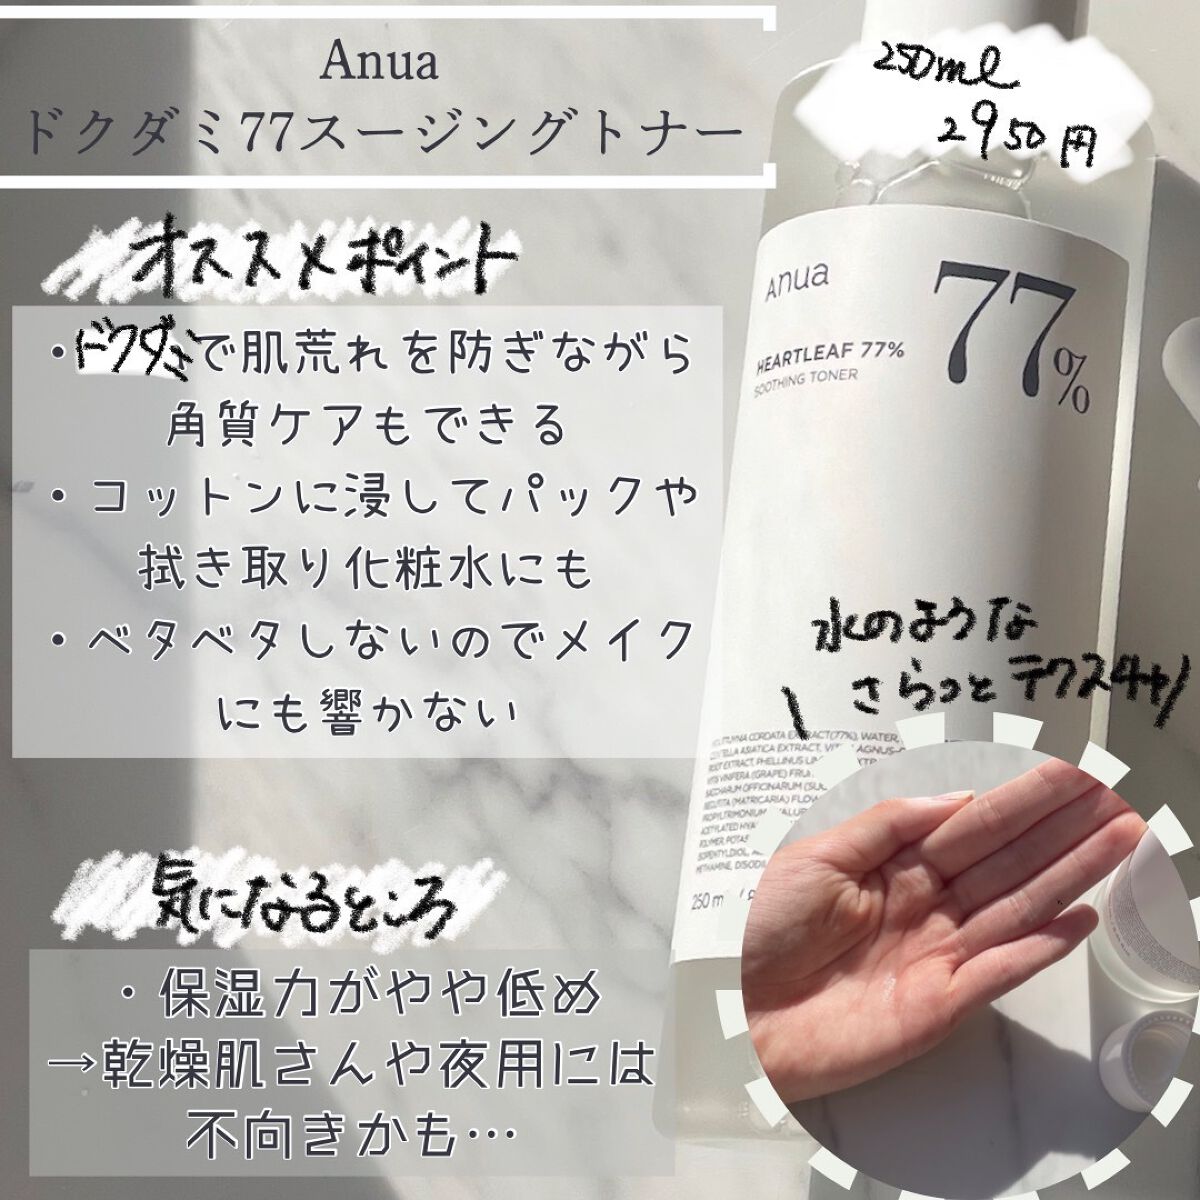 Anua
ドクダミ77スージングトナー
250ml
2950円
オススメポイント
・ドクダミで肌荒れを防ぎながら
角質ケアもできる
・コットンに浸してパックや
拭き取り化粧水にも
・ベタベタしないのでメイク
にも響かない
気になるところ
・保湿力がやや低め
→乾燥肌さんや夜用には
不向きかも…
Anua
77%
HEARTLEAF 77%
SOOTHING TONER
水のような
\ さらっとテクスチャ/
CORDATA EXTRACT(77%), WATER,
CENTELLA ASIATICA EXTRACT,
ROOT EXTRACT, PHELLINUS
VITIS VINIFERA (GRAPE)
SACCHARUM OFFICINARUM
RECUTITA (MATRICARIA)
250 m